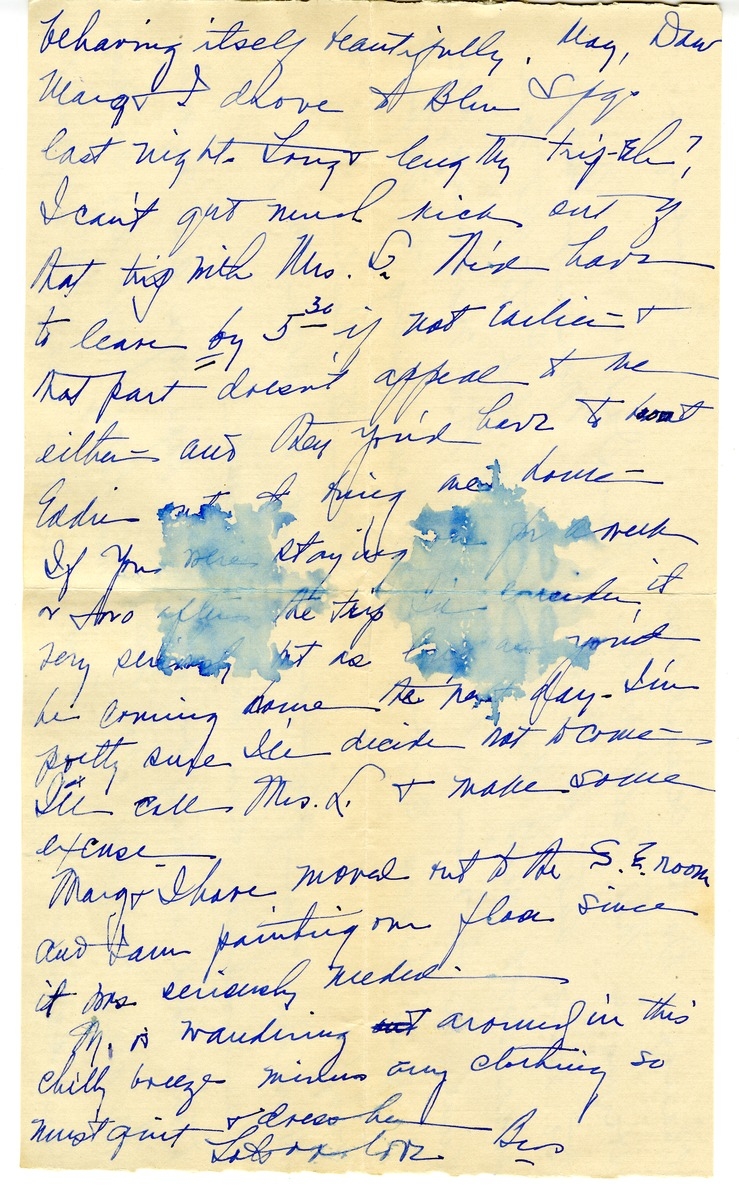 behaving itself beautifully. May, Dave
Marg & I drove to Blue Spgs
last night. Long & lengthy trip - Eh?,
I can't get much kick out of
that trip with Mrs. L. We'd have
to leave by 5 30 if not earlier &
that part doesn't appeal to me
either and then you'd have to
Eddie out to bring me home
If you were staying for a week
or two after the trip I'd consider it
very seriously but as long as you'd
be coming home the next day - I'm
pretty sure I'll decide not to come -
I'll call Mrs. L. & make some
excuse
Marg & I have moved out to the S.E. room
and I am painting our floor since
it was seriously needed.
M. is wandering around in this
chilly breeze minus any clothing so
must quit & dress her
Loads of love Bess